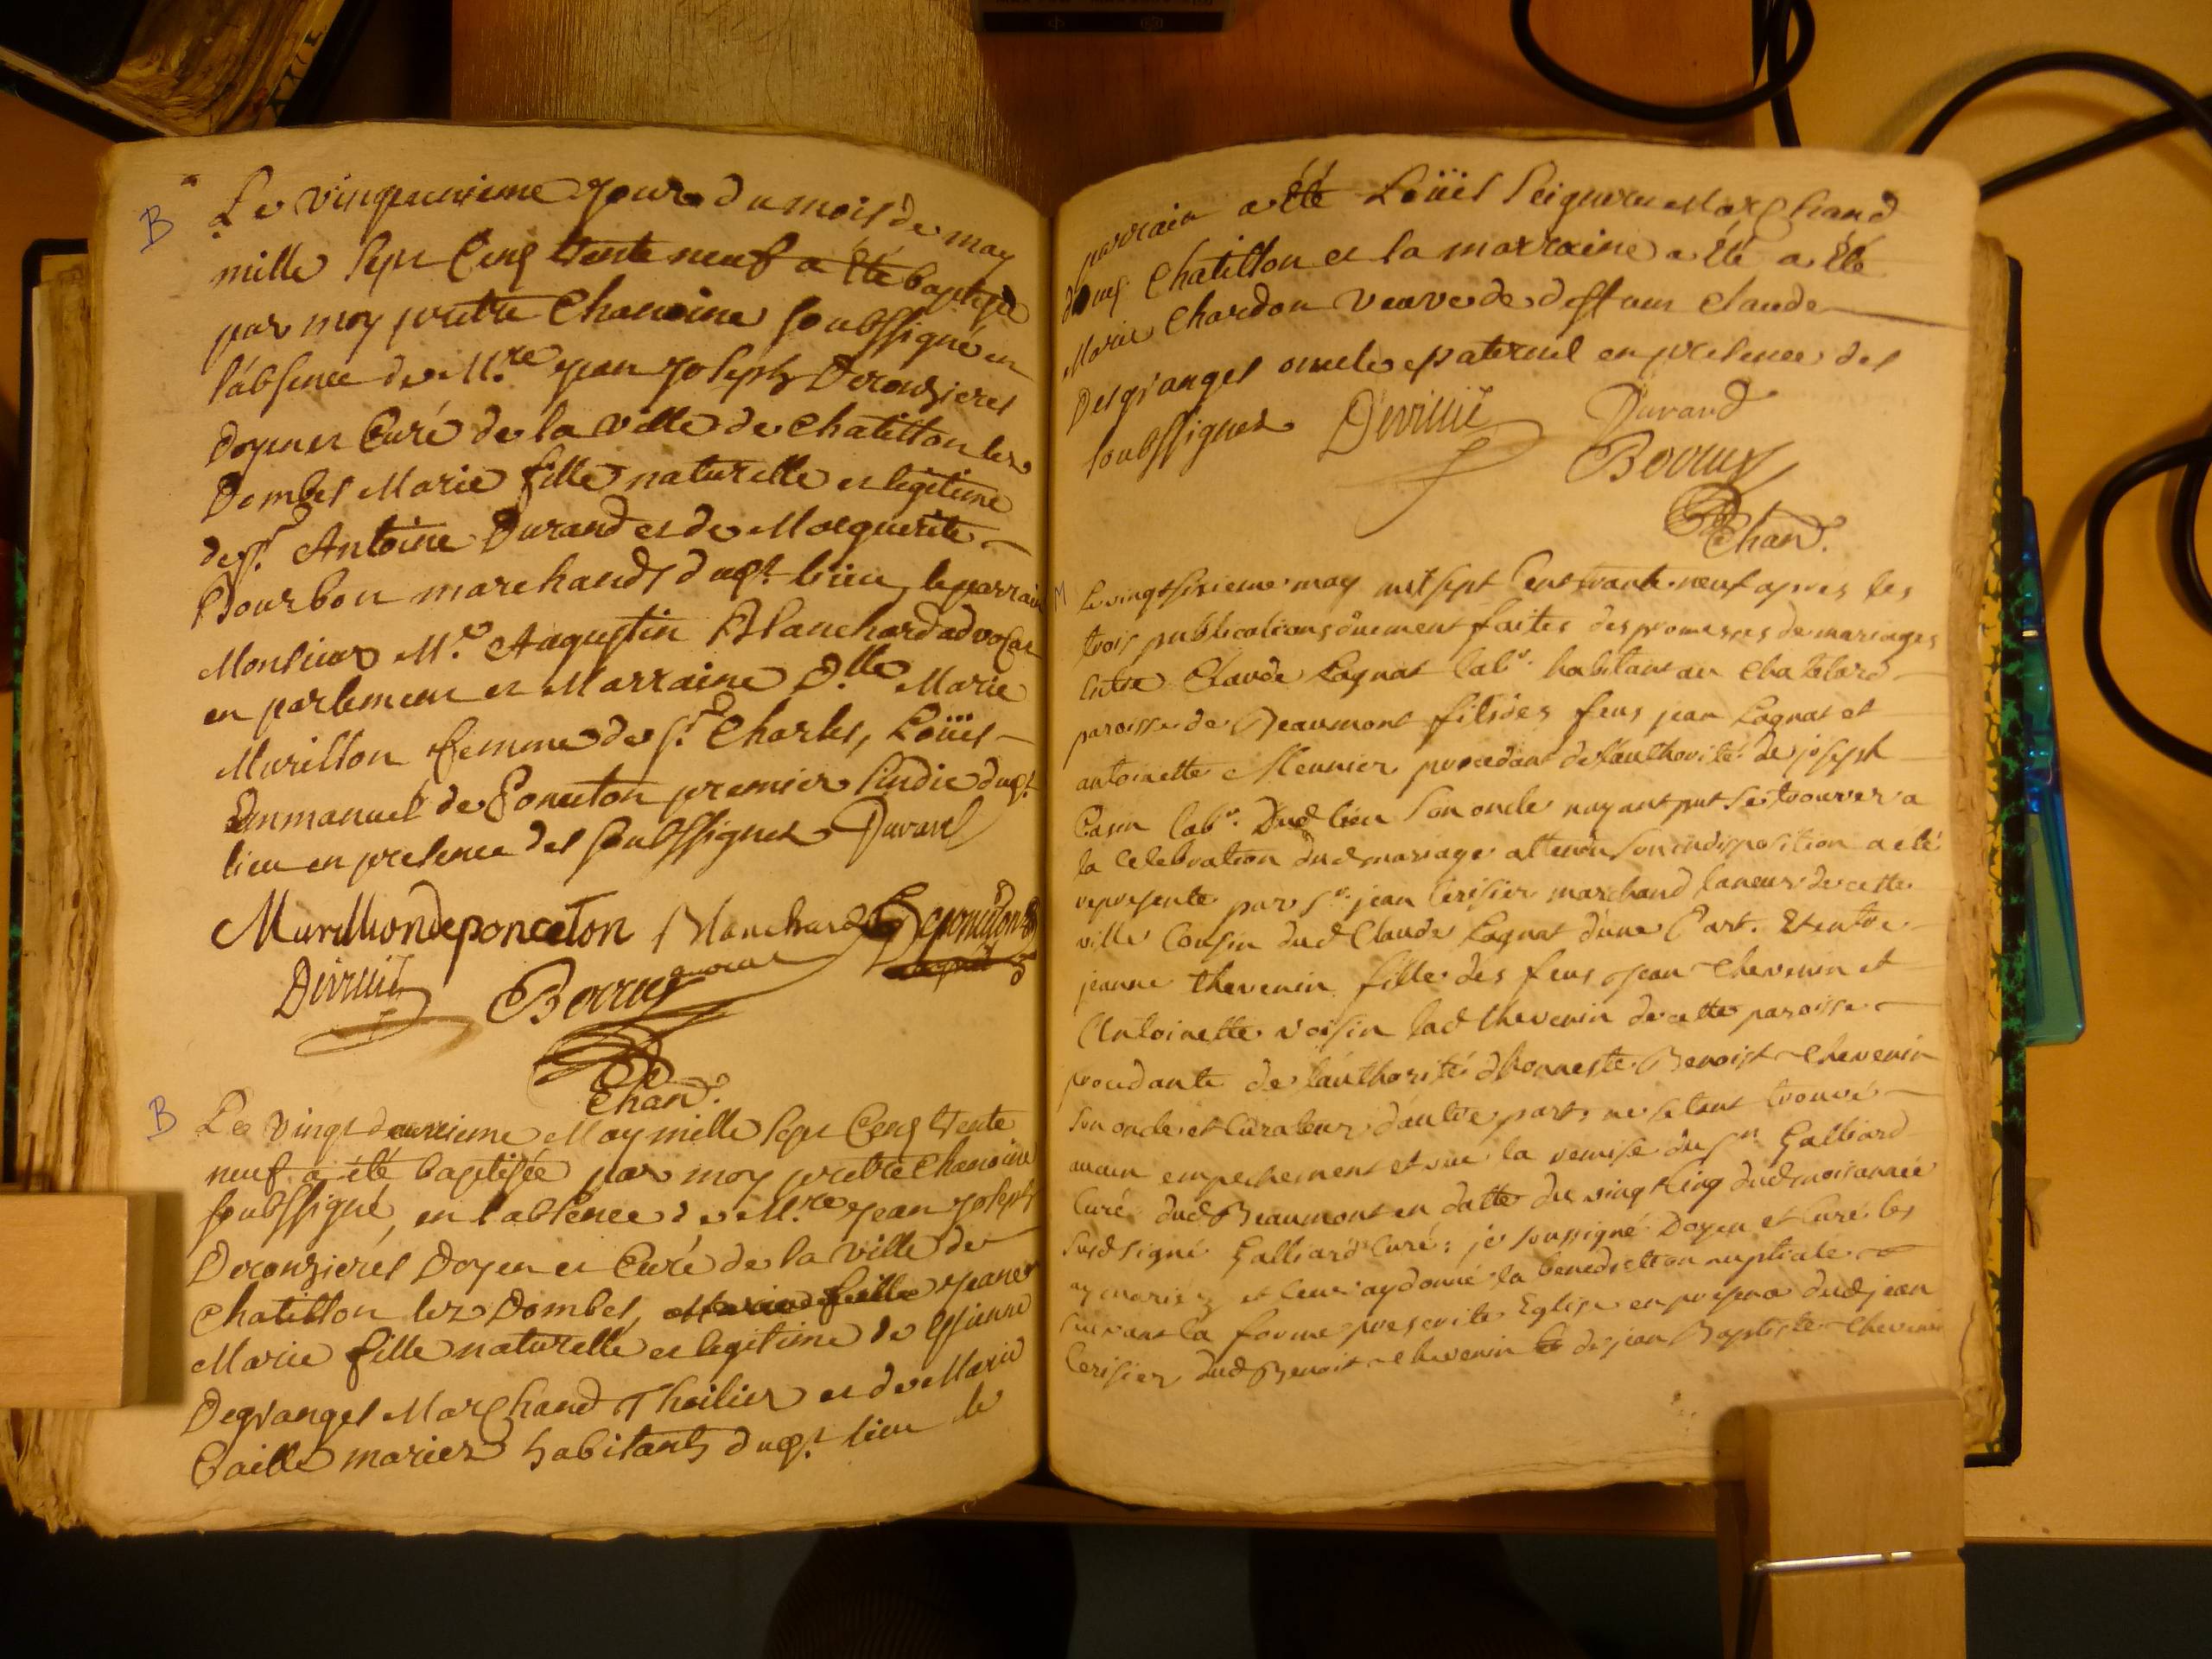 B
Le vingtunieme Jour du mois de may
mille sept Cens trente neuf a été baptisée
par moy pretre Chanoine soubssigné en
l'absence de M.re Jean Joseph Derouzieres
Doyen et Curé de la ville de Chatillon lez
Dombes Marie fille naturelle et legitime
de Sr. Antoine Durand et de Marguerite
Bourbon marchands duqt. lieu, le parrain
Monsieur M.e Augustin Blanchard advocat
en parlement et Marraine D.lle Marie
Murillon femme de Sr. Charles, Loüis
Emmanuel de Ponceton premier sindic duqt.
lieu en presence des soubssignez Durand
Murillion de ponceton Blanchard
Deviuit Borrus
Chan.
B
Le vingt deuxieme May mille sept Cens trente
neuf a été baptisée par moy pretre Chanoine
soubssigné, en l'absence de M.re Jean Joseph
Derouzieres Doyen et Curé de la ville de
Chatillon lez Dombes, Marie fille Jeane
Marie fille naturelle et legitime de Estienne
Degranges Marchand Thoilier et de Marie
Caille mariez habitants duqt. lieu le
parrain a été Loüis Seigneur Marchand
dud. Chatillon et la marraine a été a été
Marie Chardon veuve de deffunt Claude
Desgranges oncle paternel en presence des
soubssignez Deviuit Durand
Borrus
Chan.
M
Le vingtsixieme may mil sept Cent trante neuf apres les
trois publications duement faites des promesses de mariages
Entre Claude Lagnat labr. habitant au Chatelard
paroisse de Beaumont fils des feus jean Lagnat et
antoinette Meunier procedant de l'authorité de joseph
labr. Dud lieu son oncle nayant put se trouver a
la Celebration dud mariage attendu son indisposition a été
represente par Sr. jean Cerisier marchand taneur de cette
ville Cousin dud Claude Lagnat d'une Part. Et entre
jeanne thevenin fille des feus Jean thevenin et
Antoinette voisin lad thevenin de cette paroisse
procedante de l'authorité d'honneste Benoist thevenin
Son oncle et Curateur d'autre part, ne setant trouvé
aucun empechement et vue la remise du Sr. Galliard
Curé dud Beaumont en datte du vingt cinq dud mois année
susd signé Galliard Curé; je soussigné Doyen et Curé les
ay mariez et leur ay donné la benediction nuptiale
suivant la forme prescrite Eglise en presence dud jean
Cerisier dud Benoit thevenin de jean Baptiste thevenin